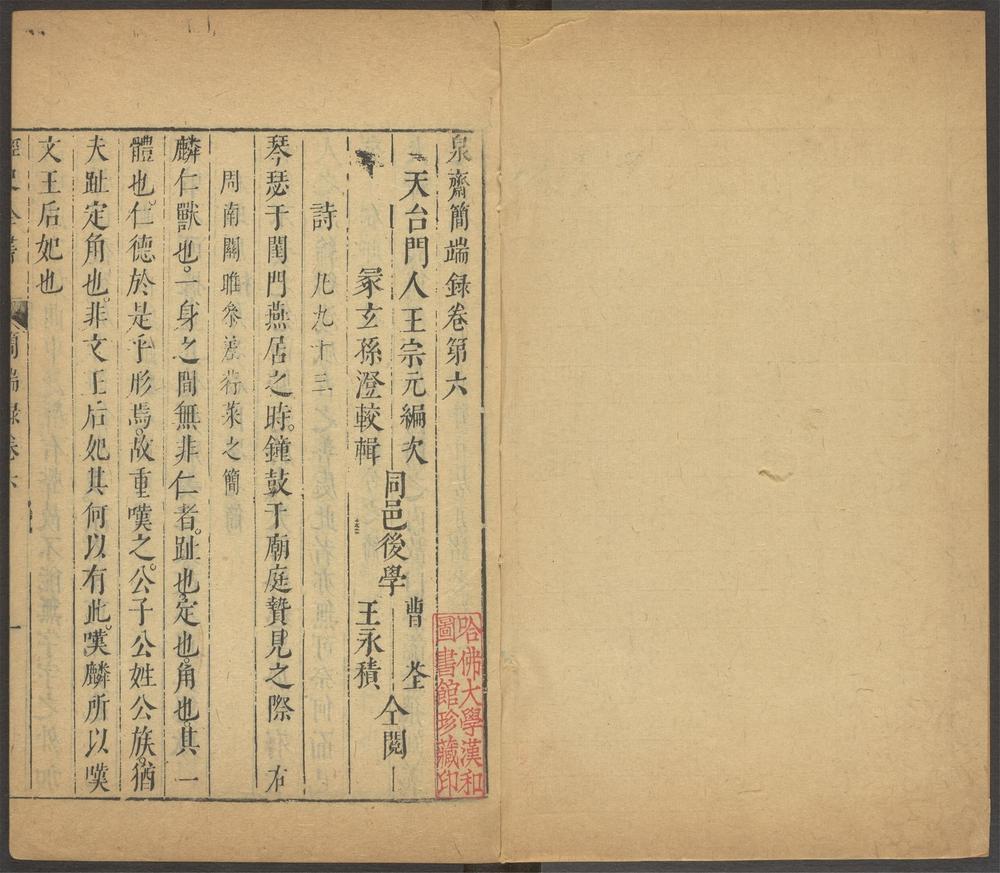 泉齋簡端録卷第六
天台門人王宗元編次
冡玄孫澄較輯
同邑後學
曹荃
王永積
仝閱
詩 凡九十三
琴瑟于閨門燕居之時。鐘鼓于廟庭贊見之際 右
周南關雎參差荇菜之簡
麟仁獸也。一身之間無非仁者。趾也。定也。角也。其一
體也。仁德於是乎形焉。故重嘆之。公子公姓公族。猶
夫趾定角也。非文王后妃其何以有此。嘆麟所以嘆
文王后妃也
簡端録卷六
一
哈佛大學漢和
圖書館珍藏印